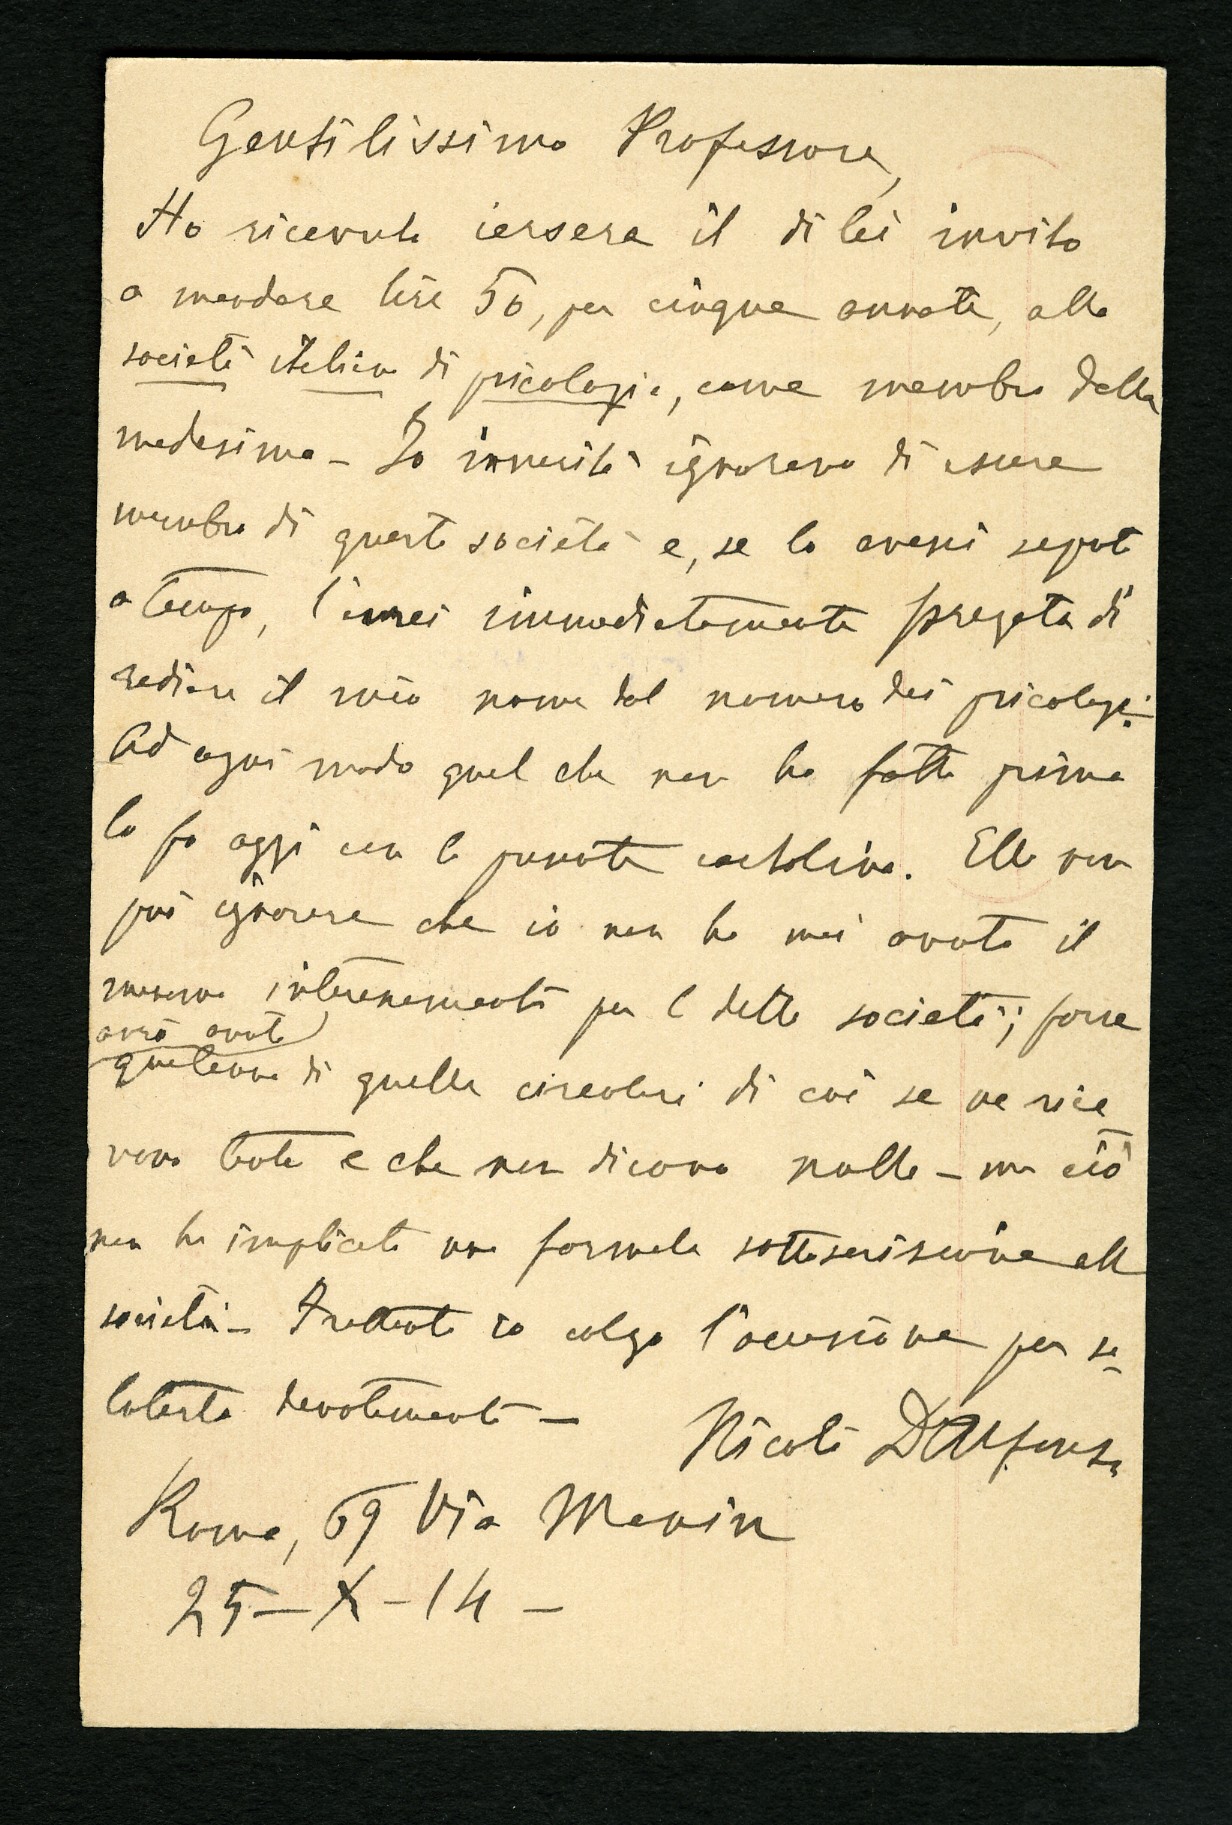 Gentilissimo Professore,
Ho ricevuto iersera il di lei invito
a mandare lire 50, per cinque annate, alla
società italiana di psicologia, come membro della
medesima – Io in verità ignoravo di essere
membro di questa società e, se lo avessi saputo
a tempo, l'avrei immediatamente pregata di
radiare il mio nome dal numero dei psicologi.
Ad ogni modo quel che non ho fatto prima
lo fo oggi con la presente cartolina. Ella non
può ignorare che io non ho mai avuto il
menomo interessamento per la detta società; forse
avrò avuto
qualcuna di quelle circolari di cui se ne rice
vono tante e che non dicono nulla – ma ciò
non ha implicato una formale sottoscrizione alla
società – Frattanto io colgo l'occasione per sa
lutarla devotamente –
Nicolò D'Alfonso
Roma, 69 Via Manin
25 – X – 14 –